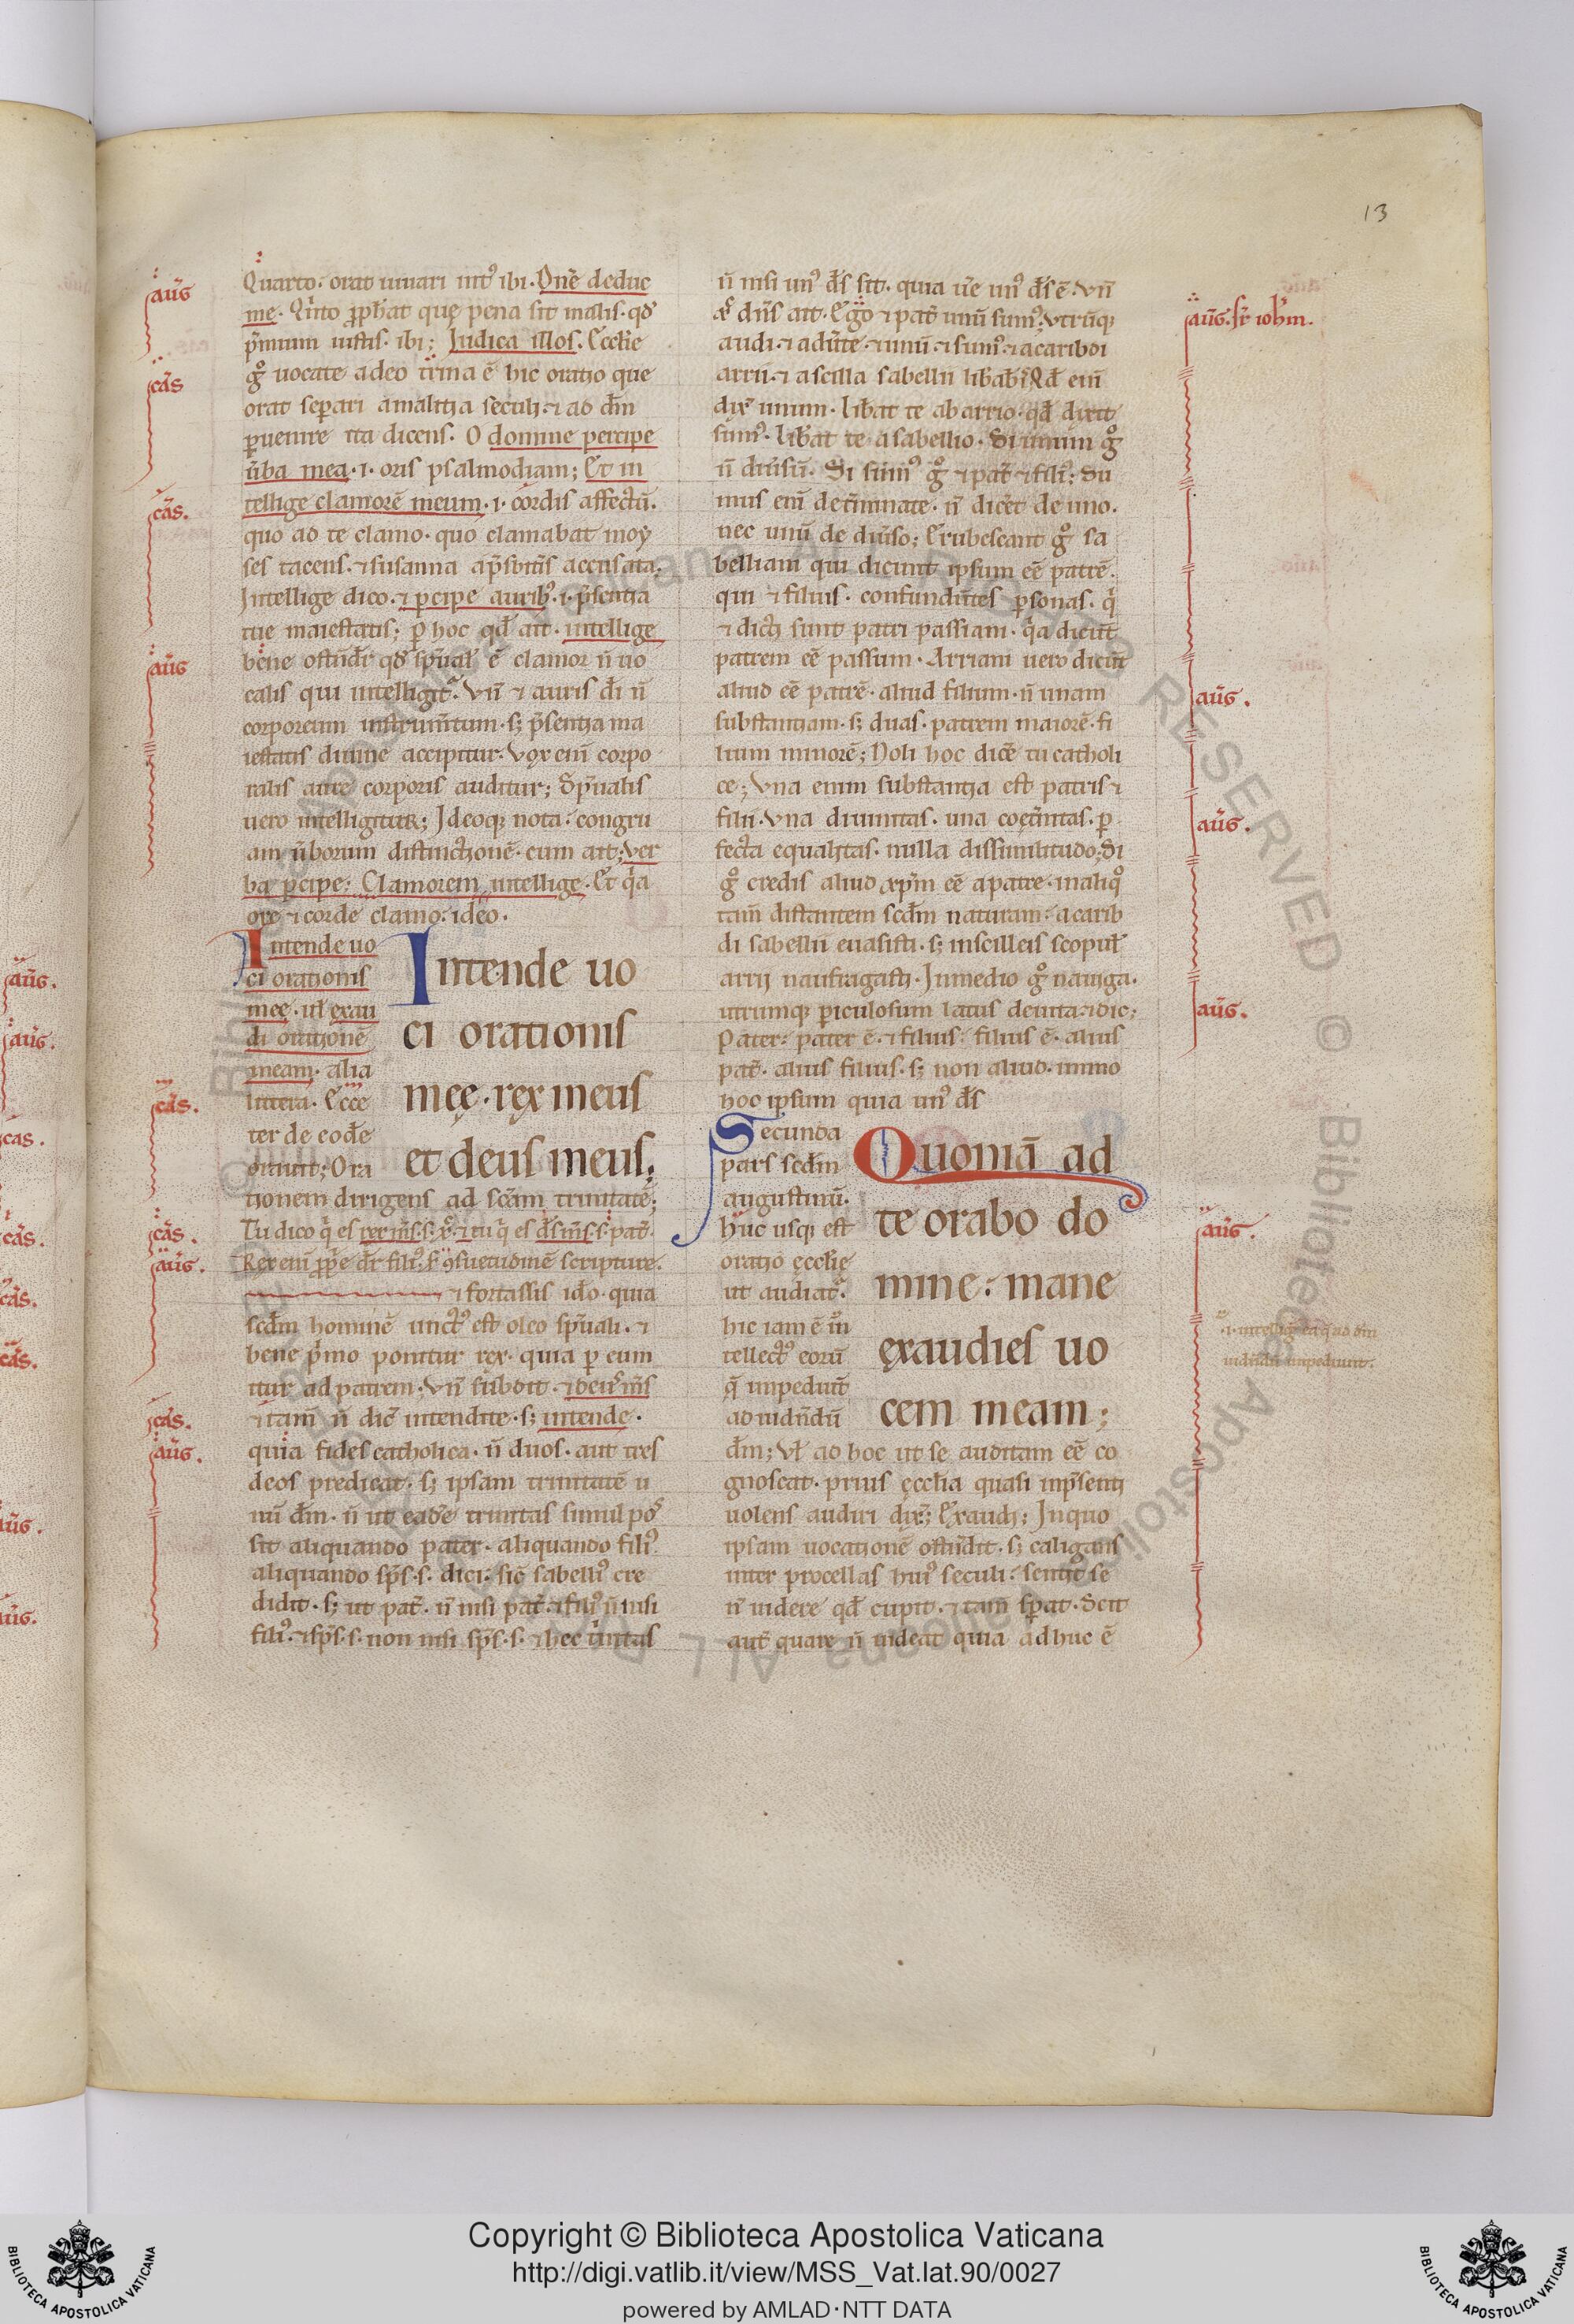 13
Quarto. orat iuuari int᷒ ibi. Dn̄e deduc
me. Qͥnto ꝓph̄at quę pena sit malis. qd̛
p̄mium iustis. ibi; Iudica illos. Ecclīe
gͦ uocate a deo trina ē hic oratio que
orat sep̱ari a malitia seculi. ⁊ ad dm̄
ꝑuenire ita dicens. O domine percipe
ūba mea .i. oris psalmodiam; Et in
tellige clamorē meum .i. cordis affectū.
quo ad te clamo. quo clamabat moy
ses tacens. ⁊ susanna a p̄sbitīs accusata.
Intellige dico. ⁊ ꝑcipe aurib᷒ .i. p̄sentia
tue maiestatis; ꝑ hoc qd̄ ait. intellige
bene ostn̄dr̄ qd̛ sp̄ual̛ ē clamor n̄ uo
calis qui intelligit᷑. Vn̄ ⁊ auris di̅ n̄
corporeum instrum̄tum. sꝫ p̄sentia ma
iestatis diuine accipitur. Vox eni̅ corpo
ralis aure corporis auditur; Sp̄ualis
uero intelligitur; Ideoqꝫ nota. congru
am ūborum distinctionē. cum ait; ver
ba ꝑcipe: Clamorem intellige. Et qͥa
ore ⁊ corde clamo: ideo.
Intende uo
ci orationis
mee. ul̛ exau
di orationē
meam. alia
littera. Ecce
ter de eodē
orauit; Ora
Intende uo
ci orationis
meę. rex meus
et deus meus;
tionem dirigens ad scām trinitatē;
Tu dico qͥ es rex m̄s .s. x᷒. ⁊ tu qͥ es ds̄ m̄s .s. pat̄.
Rex eni̅ ꝓp̄e dr̄ fili᷒. s̄ ꝯsuetudinē scripture.
⁊ fortassis id̄o. quia
scdm̄ hominē unct᷒ est oleo sp̄uali. ⁊
bene p̄mo ponitur rex. quia ꝑ eum
itur ad patrem. Vn̄ subdit. ⁊ deus m̄s
⁊ tam̄ n̄ dic̄ intendite. sꝫ intende.
quia fides catholica. n̄ duos. aut tres
deos predicat. sꝫ ipsam trinitatē u
nū dm̄. n̄ ut eadē trinitas simul pos̄
sit aliquando pater. aliquando fili᷒.
aliquando sp̄s .s. dici. sic̄ sabelli᷒ cre
didit. sꝫ ut pat̄. n̄ nisi pat̄. ⁊ fili᷒ n̄ nisi
fili᷒. ⁊ sp̄s .s. non nisi sp̄s .s. ⁊ hec tͥnitas
n̄ nisi un᷒ ds̄ sit. quia ūe un᷒ ds̄ ē. Vn̄
dn̄s ait. Ego ⁊ pat̄ unū sum᷒; vtrūqꝫ
audi. ⁊ adūte. ⁊ unū. ⁊ sum᷒. ⁊ a caribdi
arrii. ⁊ a scilla sabellii lib̄ab̄is. Qd̄ eni̅
dix̄ unum. lib̄at te ab arrio. qd̄ dixit
sum᷒. lib̄at te a sabellio. Si unum gͦ
n̄ diūsū. Si sum᷒ gͦ ⁊ pat̄ ⁊ fili᷒. Su
mus eni̅ det̄minate. n̄ dic̄et de uno.
nec unū de diūso; Erubescant gͦ sa
belliani qui dicunt ipsum eē patrē.
qui ⁊ filius. confundūtes ꝑsonas. qͥ
⁊ dicti sunt patri passiani. qͥa dicūt
patrem eē passum. Arriani uero dicūt
aliud eē patrē. aliud filium. n̄ unam
substantiam. sꝫ duas. patrem maiorē. fi
lium minorē; Noli hoc dic̄e tu catholi
ce; Vna enim substantia est patris ⁊
filii. Vna diuinitas. una coet̄nitas. ꝑ
fecta equalitas. nulla dissimilitudo; Si
gͦ credis aliud xp̄m eē a patre. in aliqͦ
tam̄ distantem scdm̄ naturam: a carib
di sabellii euasisti. sꝫ in scilleis scopul̛
arrii naufragasti. In medio gͦ nauiga.
utrumqꝫ ꝑiculosum latus deuita. ⁊ dic;
Pater. pater ē. ⁊ filius. filius ē. alius
pat̄. alius filius. sꝫ non aliud. immo
hoc ipsum quia un᷒ ds̄
Secunda
pars scdm̄
augustinū.
huc usqꝫ est
oratio ęcclīę
ut audiat᷑.
hic iam ē in̄
tellect᷒ eorū
q̄ impediūt
ad uidn̄dū
Quoniā ad
te orabo do
mine: mane
exaudies uo
cem meam;
dm̄; Vl̛ ad hoc ut se auditam eē co
gnoscat. prius ęcclīa quasi in p̄senti
uolens audiri dix̄; Exaudi; In quo
ipsam uocationē ostn̄dit. sꝫ caligans
inter procellas hui᷒ seculi. sentit se
n̄ uidere qd̄ cupit. ⁊ tam̄ sp̱at. Scit
aut̄ quare n̄ uideat quia adhuc ē
aūg
cās
cās.
aūg
cās.
cās.
aūg.
cās.
aūg.
aūg. sr̄ ioh̄m.
aūg.
aūg.
aūg.
aūg.
Copyright © Biblioteca Apostolica Vaticana
http://digi.vatlib.it/view/MSS_Vat.lat.90/0027
powered by AMLAD·NTT DATA
BIBLIOTECA APOSTOLICA VATICANA
BIBLIOTECA APOSTOLICA VATICANA